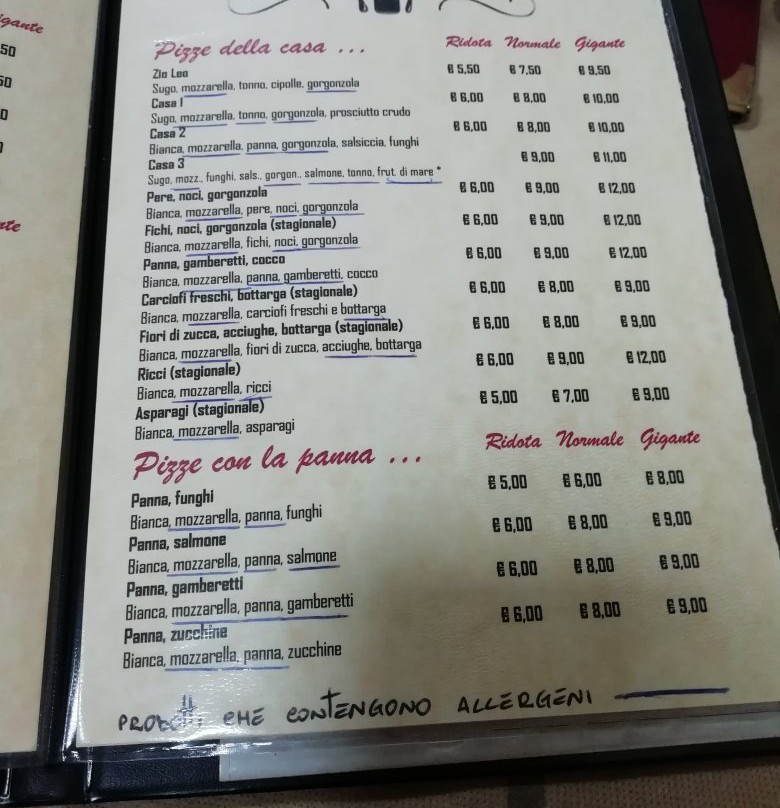 igante
50
50
0
te
Pizze della casa ... Ridota Normale Gigante
Zio Leo € 5,50 € 7,50 € 9,50
Sugo, mozzarella, tonno, cipolle, gorgonzola
Casa 1 € 6,00 € 8,00 € 10,00
Sugo, mozzarella, tonno, gorgonzola, prosciutto crudo
Casa 2 € 6,00 € 8,00 € 10,00
Bianca, mozzarella, panna, gorgonzola, salsiccia, funghi
Casa 3 € 9,00 € 11,00
Sugo, mozz., funghi, sals., gorgon., salmone, tonno, frut. di mare *
Pere, noci, gorgonzola € 6,00 € 9,00 € 12,00
Bianca, mozzarella, pere, noci, gorgonzola
Fichi, noci, gorgonzola (stagionale) € 6,00 € 9,00 € 12,00
Bianca, mozzarella, fichi, noci, gorgonzola
Panna, gamberetti, cocco € 6,00 € 9,00 € 12,00
Bianca, mozzarella, panna, gamberetti, cocco
Carciofi freschi, bottarga (stagionale) € 6,00 € 8,00 € 9,00
Bianca, mozzarella, carciofi freschi e bottarga
Fiori di zucca, acciughe, bottarga (stagionale) € 6,00 € 8,00 € 9,00
Bianca, mozzarella, fiori di zucca, acciughe, bottarga
Ricci (stagionale) € 6,00 € 9,00 € 12,00
Bianca, mozzarella, ricci
Asparagi (stagionale) € 5,00 € 7,00 € 9,00
Bianca, mozzarella, asparagi
Pizze con la panna ... Ridota Normale Gigante
Panna, funghi € 5,00 € 6,00 € 8,00
Bianca, mozzarella, panna, funghi
Panna, salmone € 6,00 € 8,00 € 9,00
Bianca, mozzarella, panna, salmone
Panna, gamberetti € 6,00 € 8,00 € 9,00
Bianca, mozzarella, panna, gamberetti
Panna, zucchine € 6,00 € 8,00 € 9,00
Bianca, mozzarella, panna, zucchine
PRODOTTI CHE CONTENGONO ALLERGENI